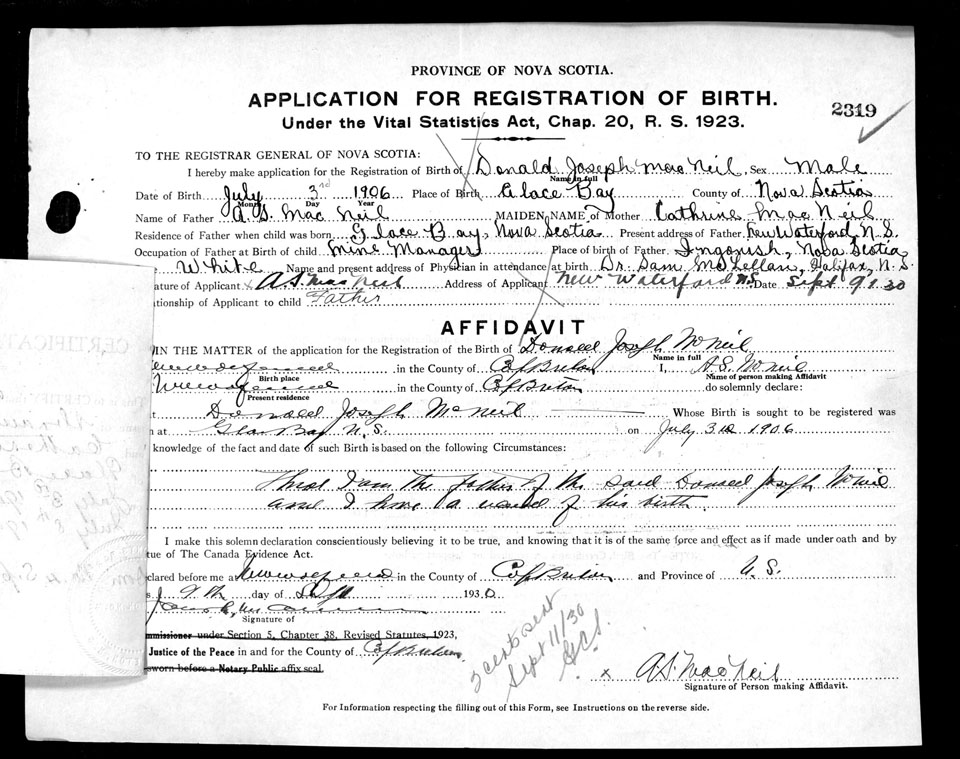 PROVINCE OF NOVA SCOTIA.
APPLICATION FOR REGISTRATION OF BIRTH.
2319
Under the Vital Statistics Act, Chap. 20, R. S. 1923.
TO THE REGISTRAR GENERAL OF NOVA SCOTIA:
I hereby make application for the Registration of Birth of Donald Joseph MacNeil Sex Male
Name in full
Date of Birth July 3rd 1906 Place of Birth Glace Bay County of Nova Scotia
Month Day Year
Name of Father A. S. Mac Neil MAIDEN NAME of Mother Cathrine Mac Neil
Residence of Father when child was born Glace Bay, Nova Scotia Present address of Father New Waterford N. S.
Occupation of Father at Birth of child Mine Manager Place of birth of Father Ingonish, Nova Scotia
White Name and present address of Physician in attendance at birth Dr. Sam McLellan, Halifax, N. S.
ature of Applicant x A. S. Mac Neil Address of Applicant New Waterford N.S. Date Sept 9 1930
lationship of Applicant to child Father
AFFIDAVIT
IN THE MATTER of the application for the Registration of the Birth of Donald Joseph McNeil
Name in full
in the County of Cape Breton I, A. S. McNeil
Birth place Name of person making Affidavit
in the County of Cape Breton do solemnly declare:
Present residence
t Donald Joseph McNeil Whose Birth is sought to be registered was
n at Glace Bay N. S. on July 3rd 1906
knowledge of the fact and date of such Birth is based on the following Circumstances:
That I am the father of the said Donald Joseph McNeil
and I have a record of his birth.
I make this solemn declaration conscientiously believing it to be true, and knowing that it is of the same force and effect as if made under oath and by
tue of The Canada Evidence Act.
clared before me at in the County of Cape Breton and Province of N. S.
s 9th day of Sept 1930
Signature of
mmissioner under Section 5, Chapter 38, Revised Statutes, 1923,
Justice of the Peace in and for the County of Cape Breton
sworn before a Notary Public affix seal.
3 cents sent
Sept 11/30
x A. S. MacNeil
Signature of Person making Affidavit.
For Information respecting the filling out of this Form, see Instructions on the reverse side.